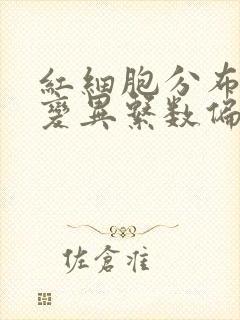 紅細胞分布
變異系数偏
佐倉准